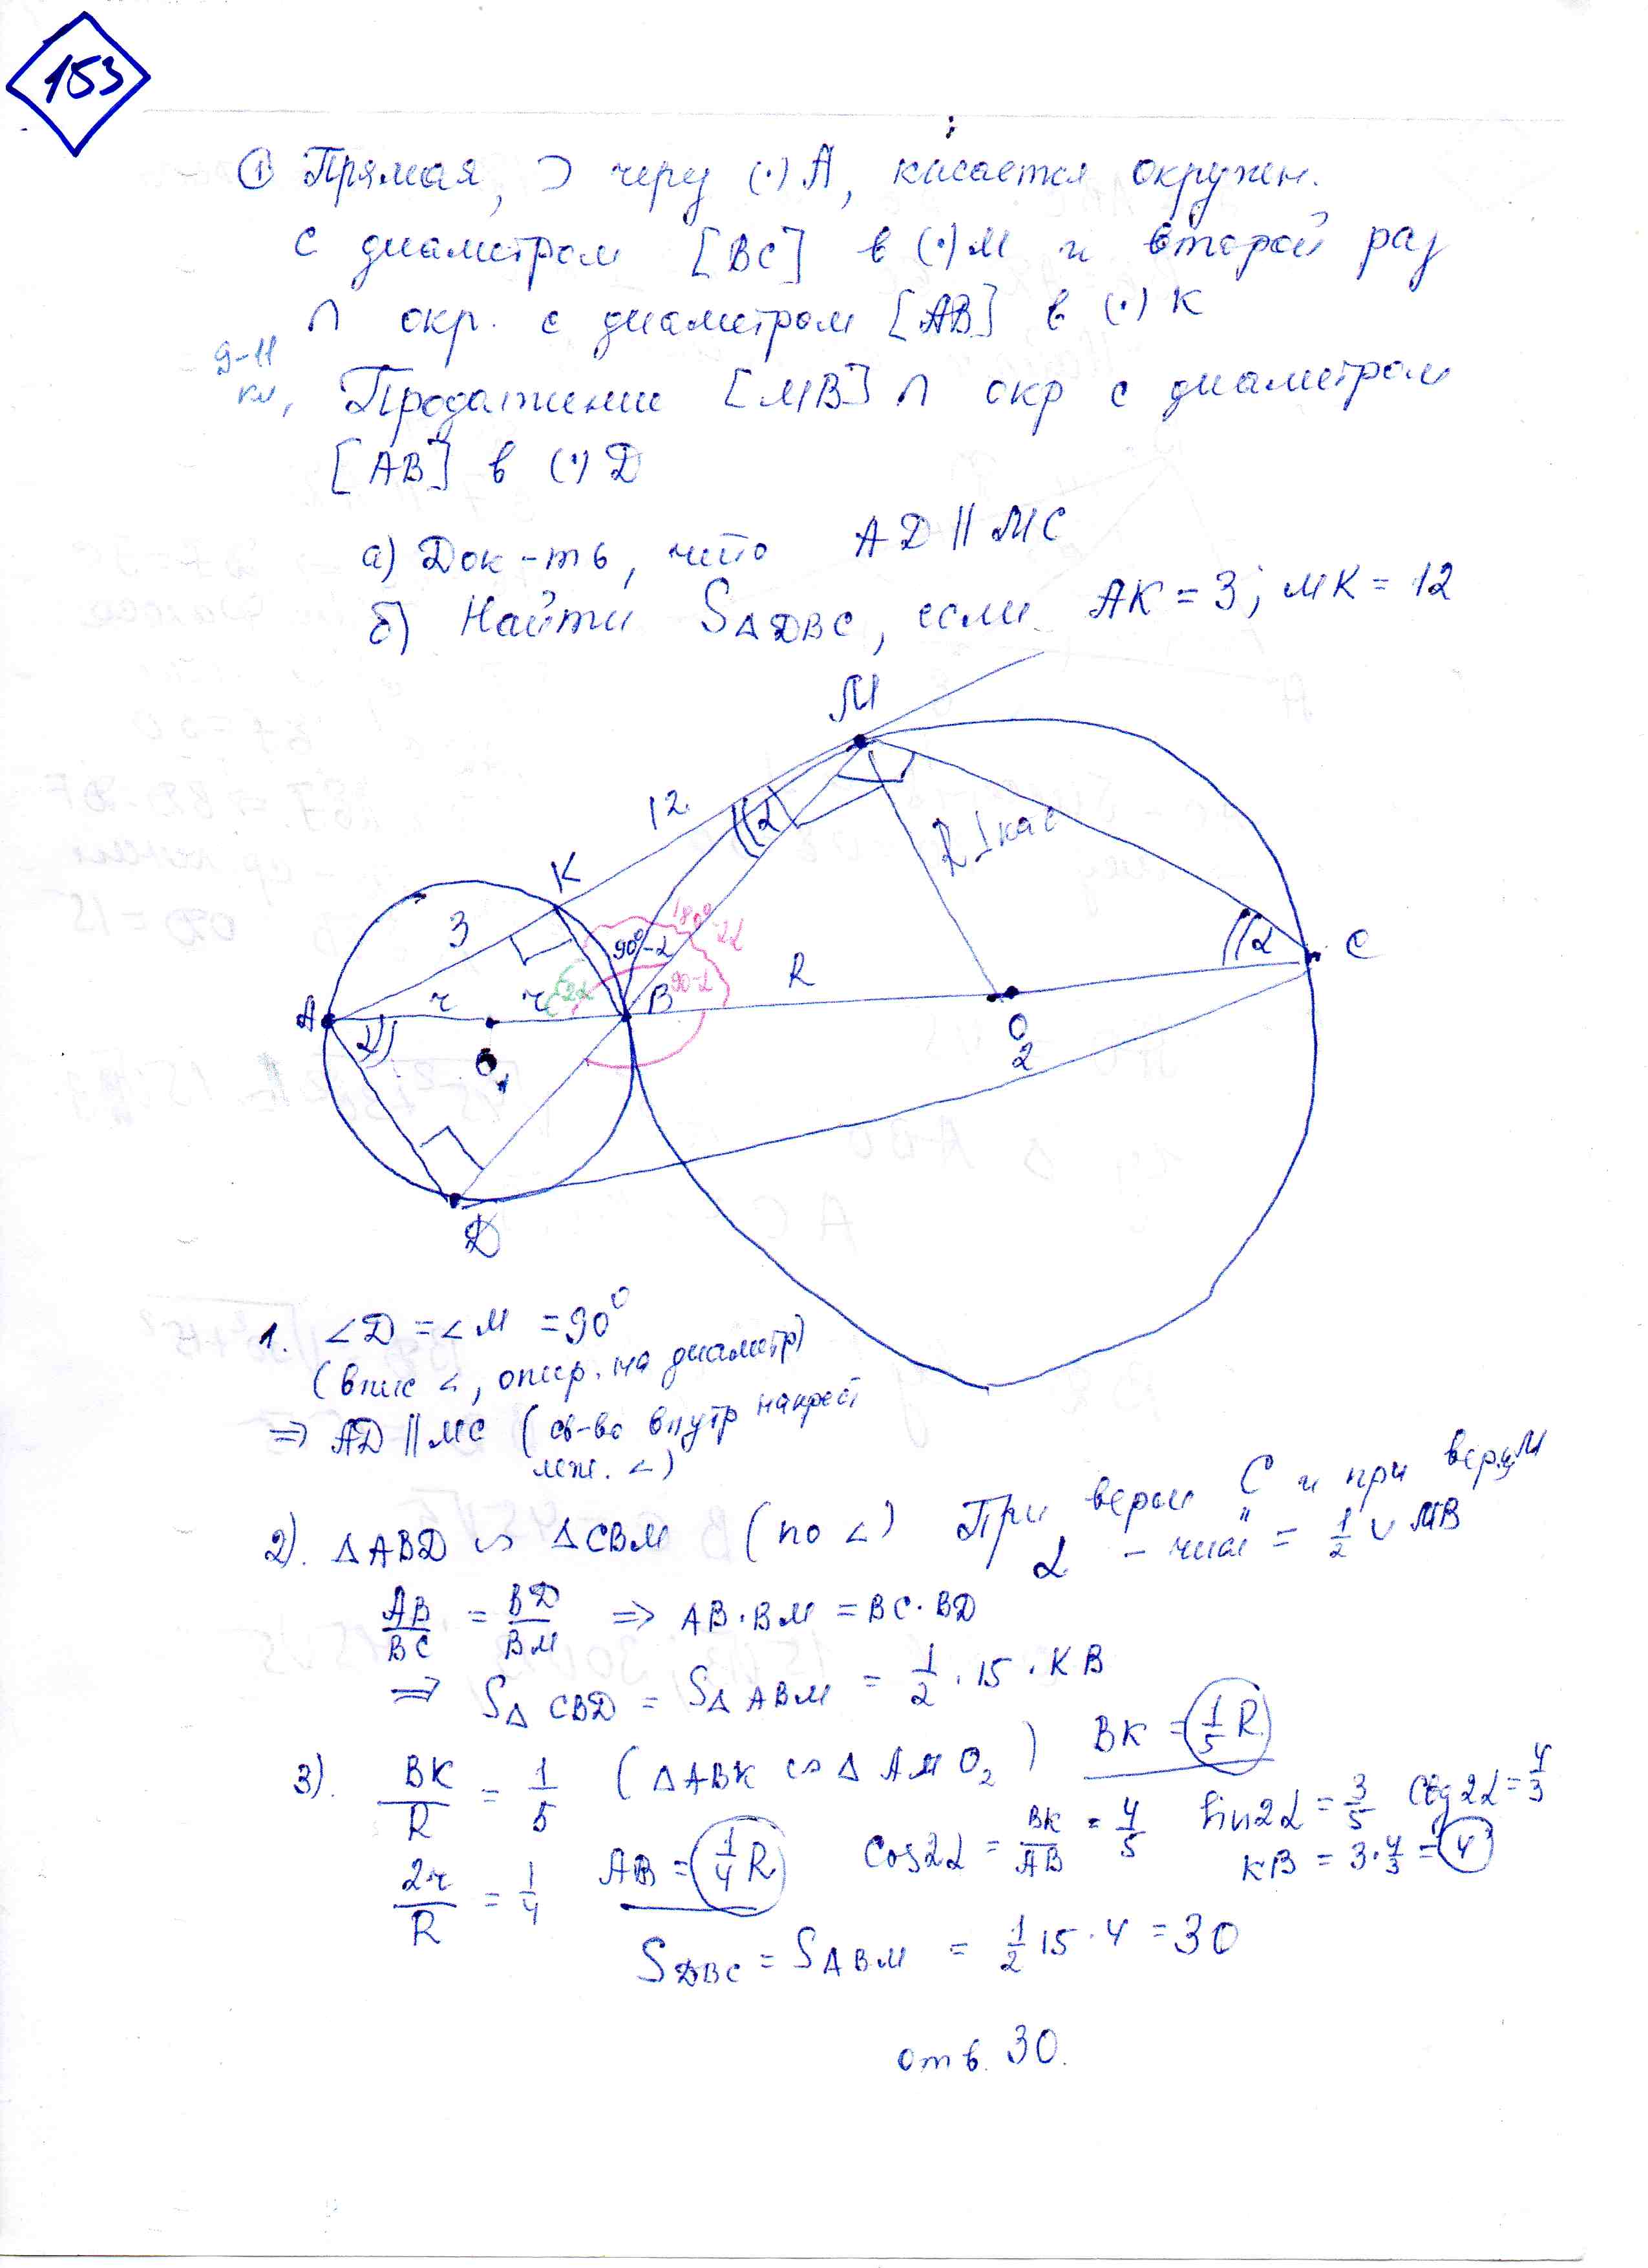 153
① Прямая, ⊃ через (·) А, касается окружн.
с диаметром [BC] в (·) М и второй раз
∩ окр. с диаметром [AB] в (·) К
9-11
кл,
Продолжение [MB] ∩ окр с диаметром
[AB] в (·) D
а) Док-ть, что AD || MC
б) Найти S△DBC, если AK = 3; MK = 12
M
12
K
3
α
R ⊥ кас
180°-2α
90°-α
2α
90-α
A
r
r
B
R
C
α
α
O₁
O₂
D
1. ∠D = ∠M = 90°
(впис ∠, опир. на диаметр)
⇒ AD || MC (св-во внутр накрест
леж. ∠)
2). △ABD ∾ △CBM (по ∠) При верши C и при верш M
α - = 1/2 ◡ MB
AB/BC = BD/BM ⇒ AB·BM = BC·BD
⇒ S△CBD = S△ABM = 1/2 · 15 · KB
3). BK/R = 1/5 (△ABK ∾ △AMO₂) BK = 1/5 R
2r/R = 1/4 AB = 1/4 R cos2α = BK/AB = 4/5 sin2α = 3/5 ctg2α = 4/3
KB = 3·4/3 = 4
SDBC = SABM = 1/2 15·4 = 30
отв. 30.